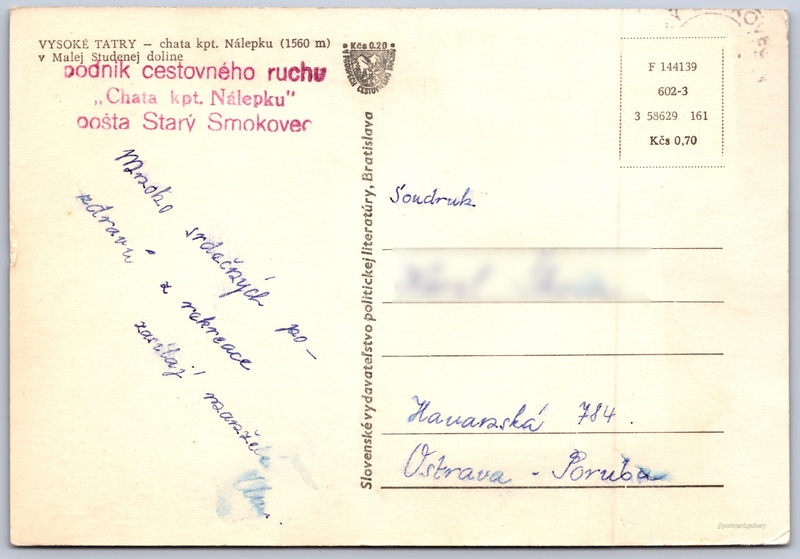 VYSOKÉ TATRY — chata kpt. Nálepku (1560 m)
v Malej Studenej doline
podnik cestovného ruchu
„Chata kpt. Nálepku"
pošta Starý Smokovec
Mnoho srdečných po-
zdravů z rekreace
zasílají manželé
Kčs 0.20
Slovenské vydavateľstvo politickej literatúry, Bratislava
F 144139
602-3
3 58629 161
Kčs 0,70
Soudruh
Havanská 784.
Ostrava - Poruba